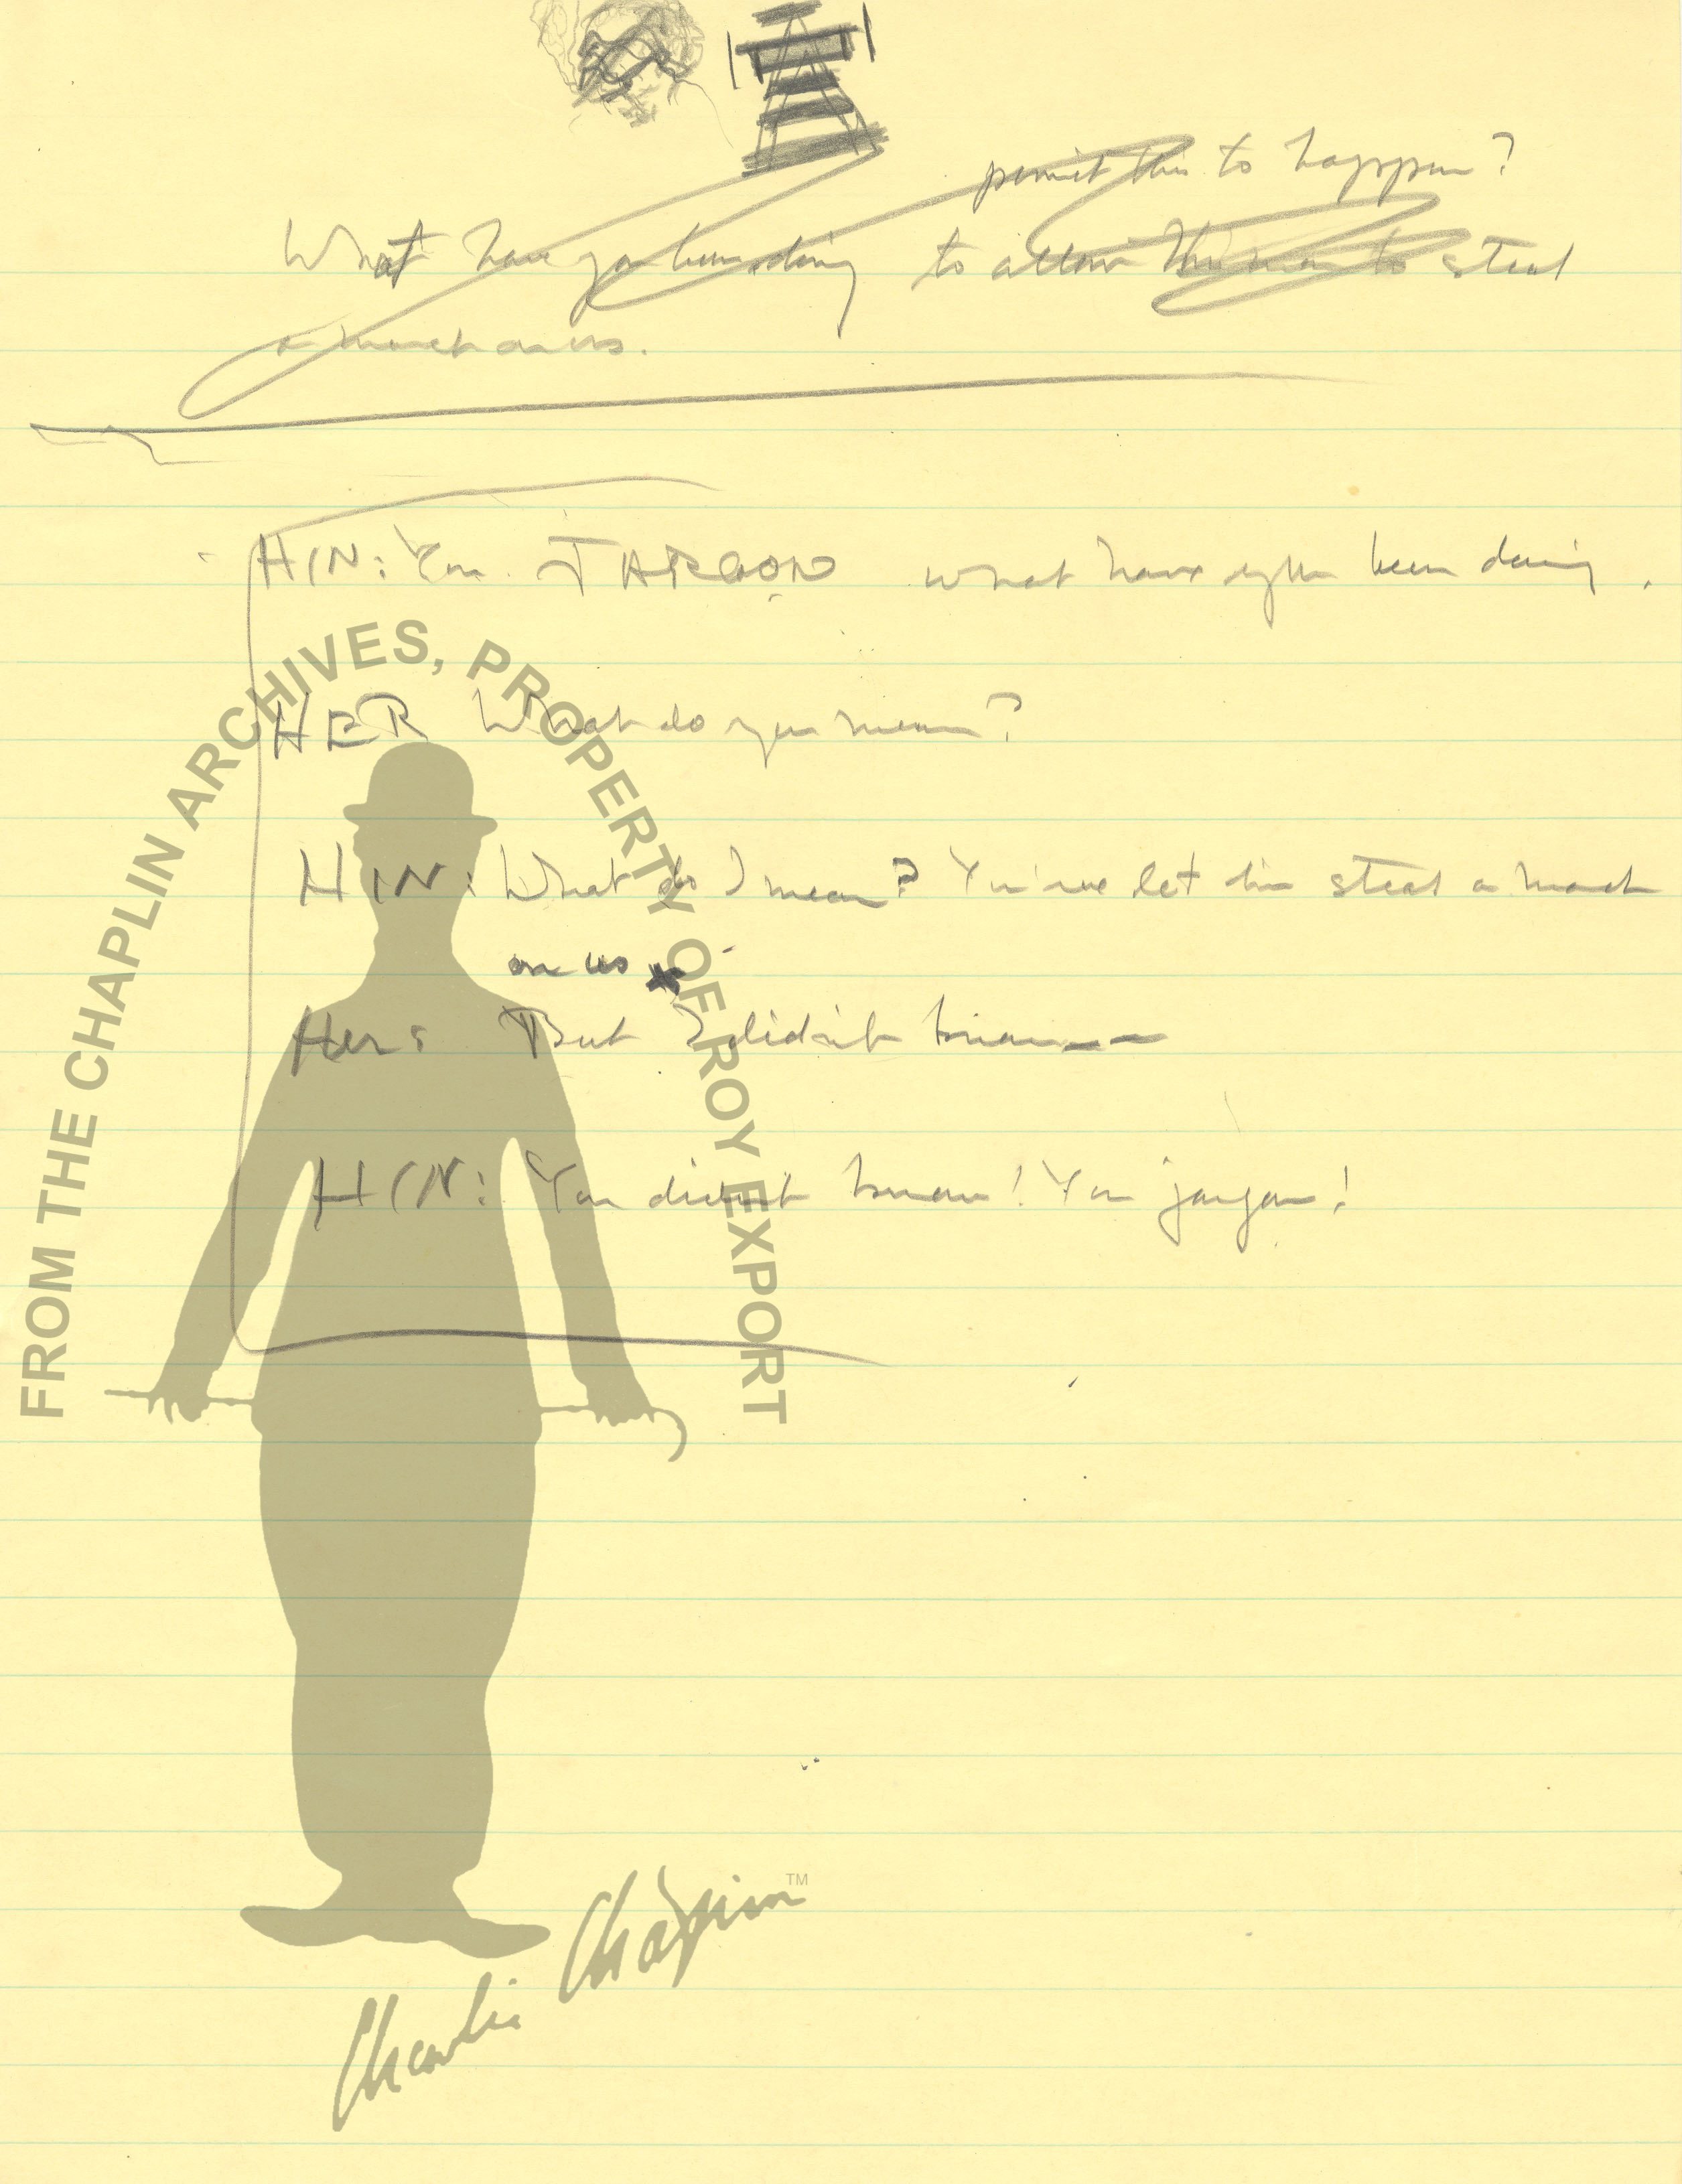 permit this to happen?
What have you been doing to allow this man to steal
a march on us.
HIN: You JARGON what have you been doing.
HER What do you mean?
HIN: What do I mean? You've let him steal a march
on us
Her: But I didn't know
HIN: You didn't know! You jargon!
FROM THE CHAPLIN ARCHIVES, PROPERTY OF ROY EXPORT
Charlie Chaplin™